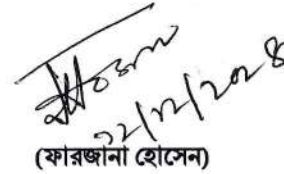 ১২/১২/২০২৪
(ফারজানা হোসেন)